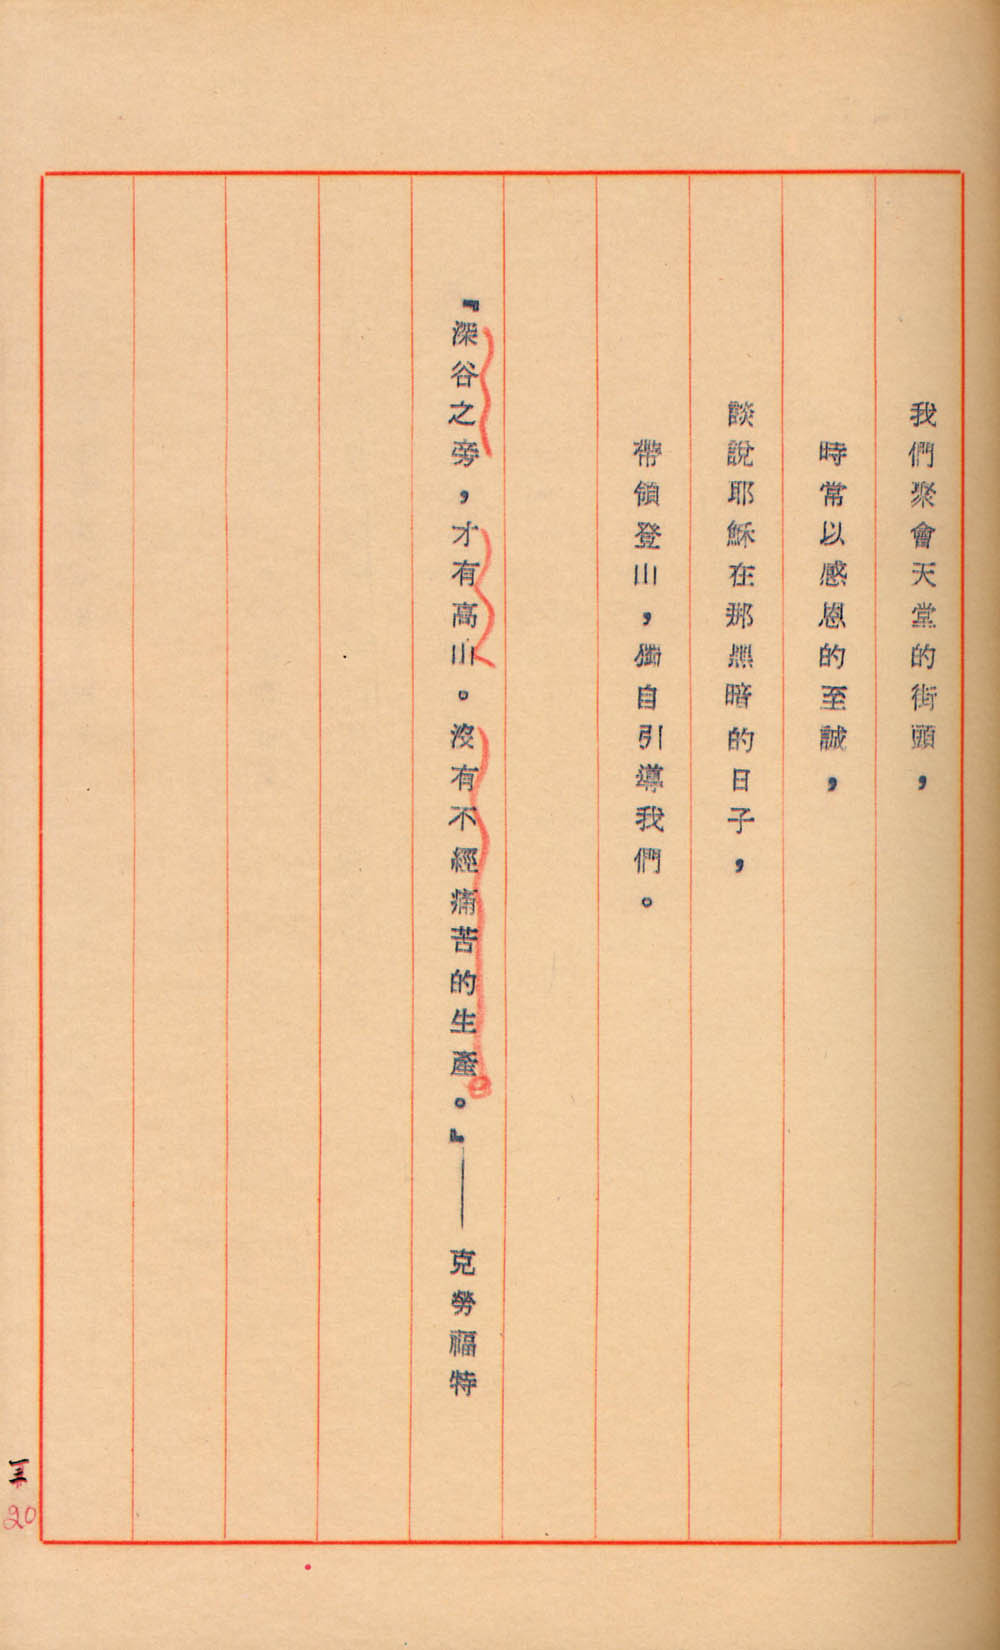 我們聚會天堂的街頭，
時常以感恩的至誠，
談說耶穌在那黑暗的日子，
帶領登山，獨自引導我們。
『深谷之旁，才有高山。沒有不經痛苦的生產。』——克勞福特
20